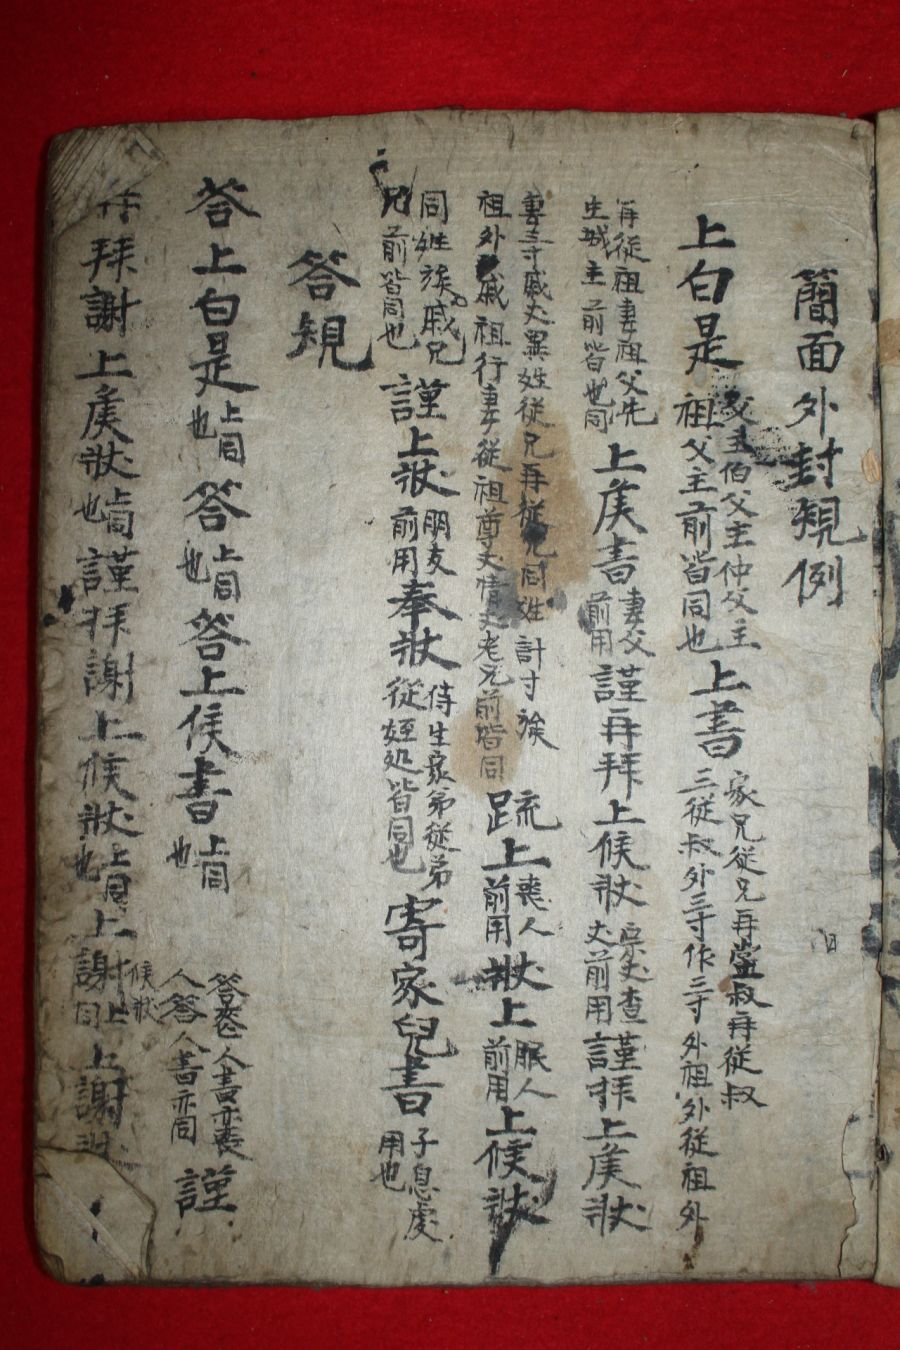 簡面外封規例
上白是 父主伯父主仲父主祖父主前皆同也 上書 家兄従兄再堂叔再従叔三従叔外三寸作三寸外祖外従祖外
再従祖妻祖父先生城主前皆也同 上候書 妻父前用 謹再拜上候狀 宗丈查丈前用 謹拜上候狀
妻三寸戚丈異姓従兄再従兄同姓計寸族祖外戚祖行妻従祖尊丈情丈老兄前皆同 疏上 喪人前用 狀上 服人前用 上候狀
同姓族戚兄兄前皆同也 謹上狀 朋友前用 奉狀 侍生家弟従弟従姪処皆同也 寄家兒書 子息處用也
答規
答上白是 上同也 答 上同也 答上候書 上同也 答喪人書亦喪人答人書亦同 謹
再拜謝上候狀 上同也 謹拜謝上候狀 上同也 上謝候狀 上同 上謝